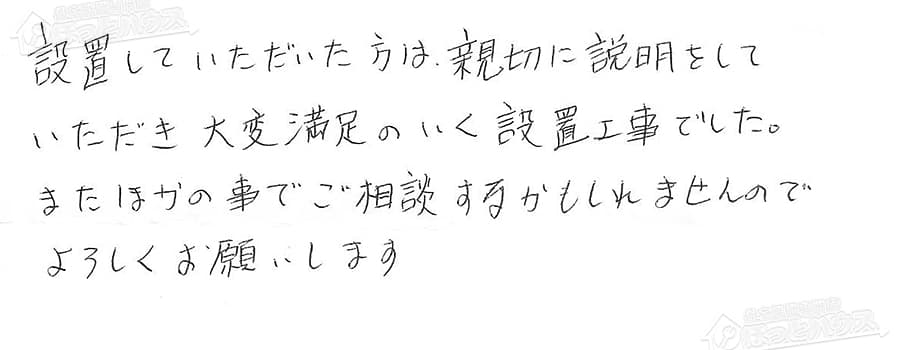 設置していただいた方は、親切に説明をして
いただき大変満足のいく設置工事でした。
またほかの事でご相談するかもしれませんので
よろしくお願いします
ほっとハウス